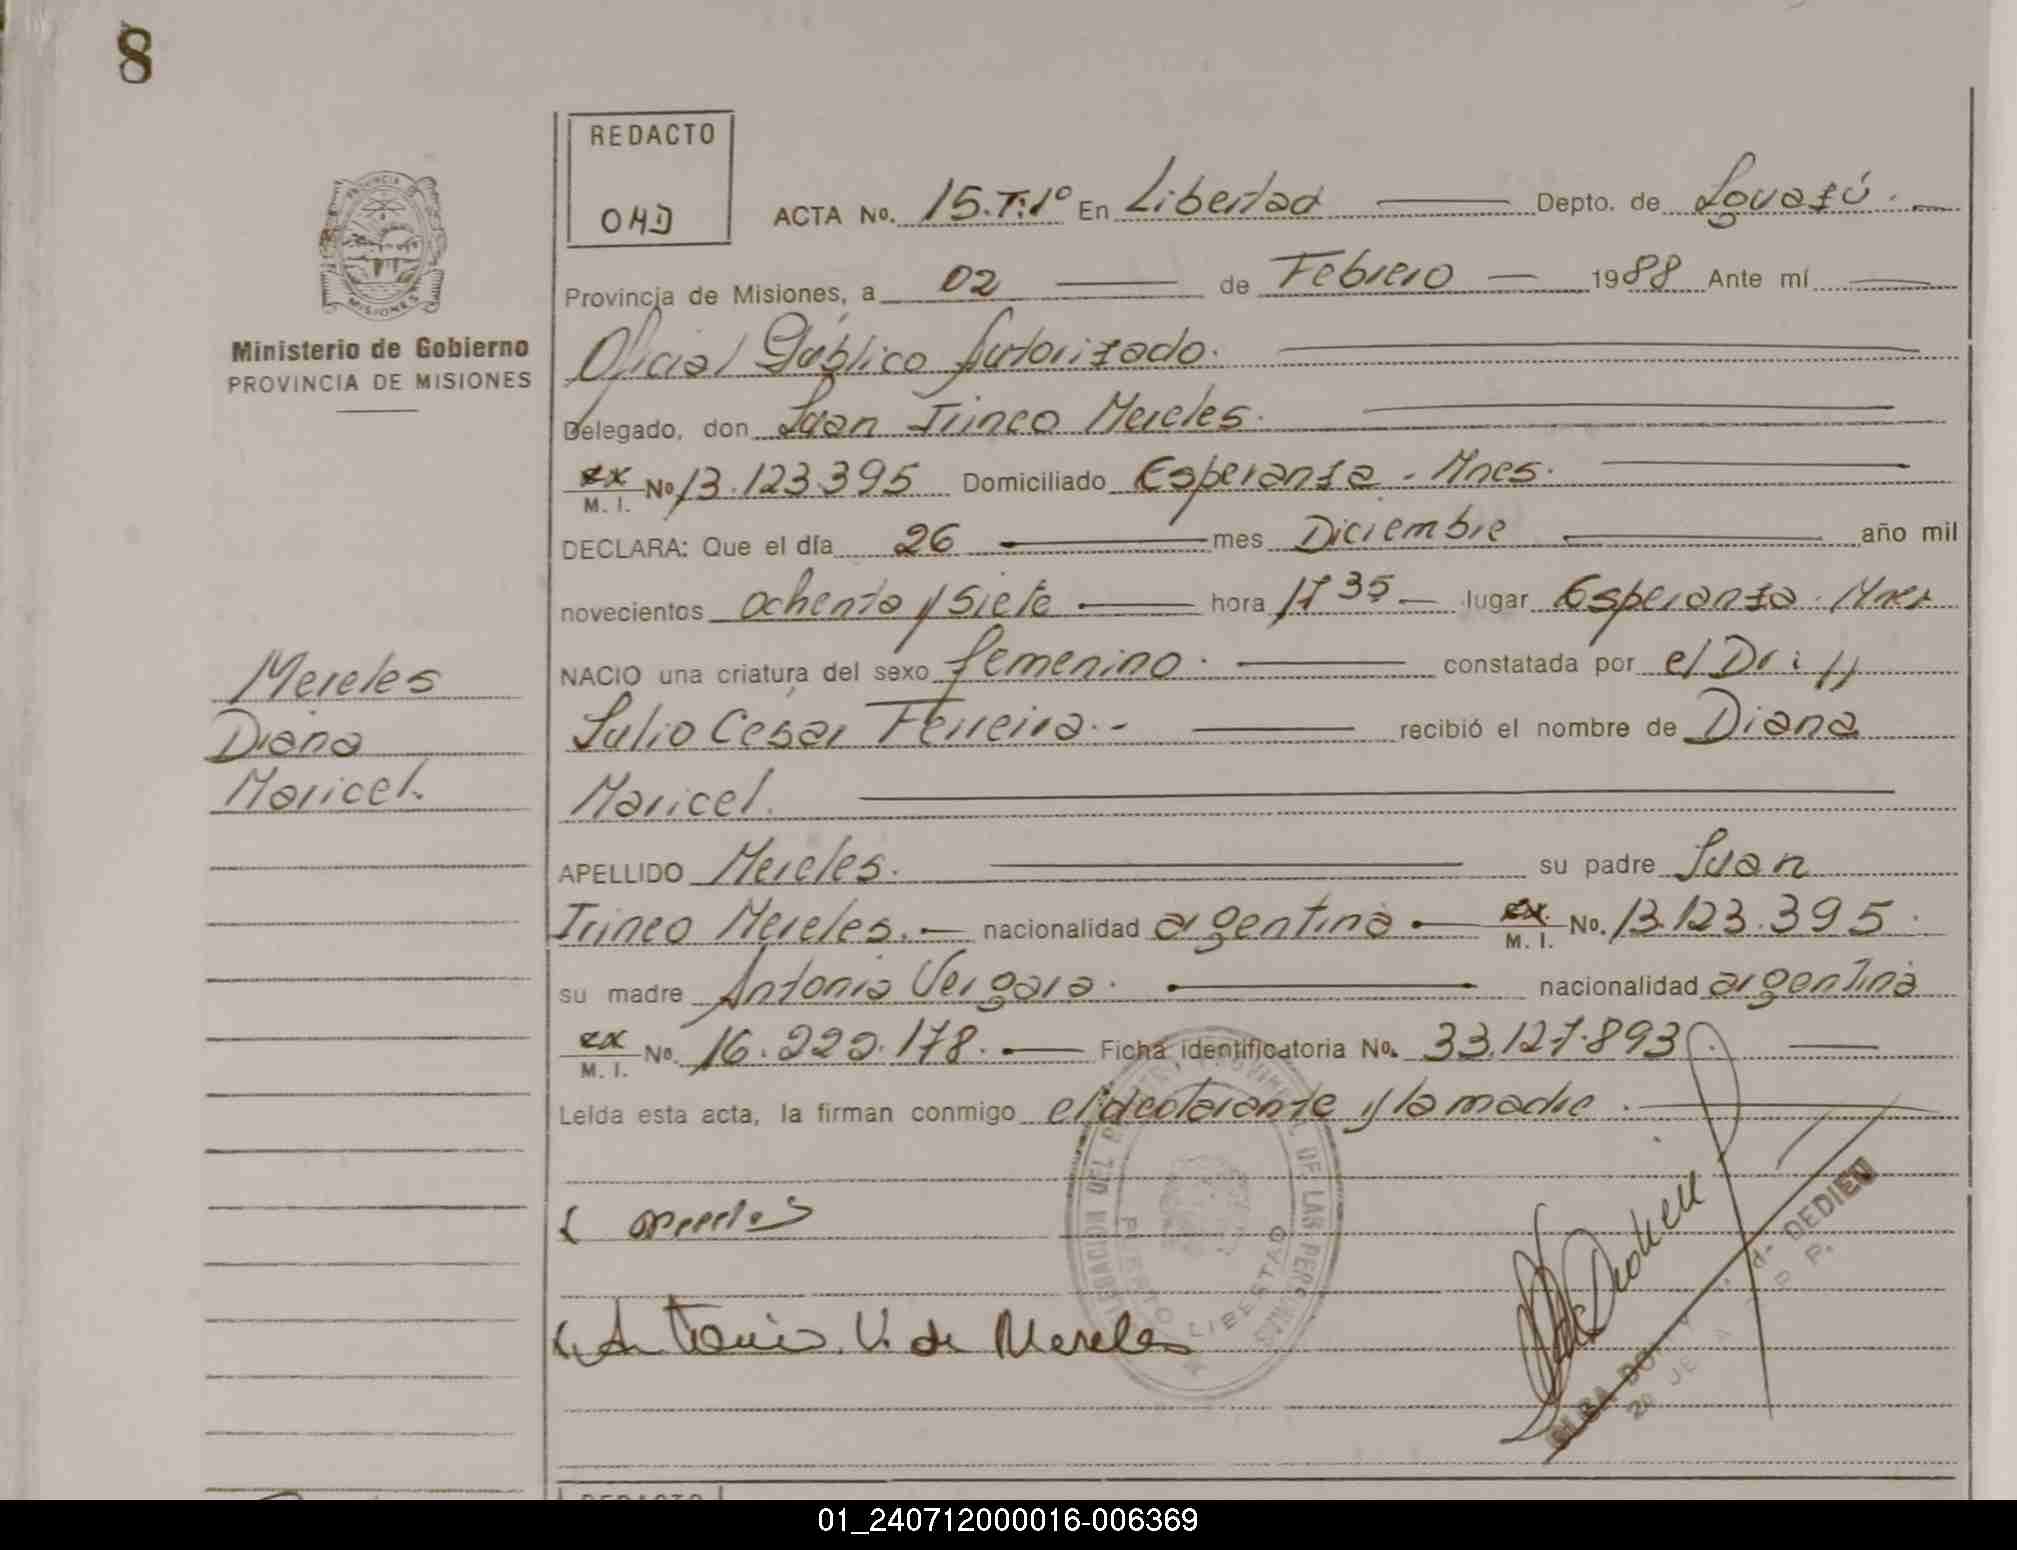 8
REDACTO
OHD
ACTA No. 15.T:1º En Libertad Depto. de Iguazú.
Provincia de Misiones, a 02 de Febrero 1988 Ante mí
Ministerio de Gobierno
PROVINCIA DE MISIONES
Oficial Público Autorizado.
Delegado, don Juan Irineo Mereles.
M. I. No 13.123.395 Domiciliado Esperanza - Mnes.
DECLARA: Que el día 26 mes Diciembre año mil
novecientos ochenta y siete hora 17 35 lugar Esperanza. Mnes
NACIO una criatura del sexo femenino. constatada por el Dr:
Julio César Ferreira.- recibió el nombre de Diana
Maricel.
Mereles
Diana
Maricel.
APELLIDO Mereles. su padre Juan
Irineo Mereles. nacionalidad argentina M. I. No. 13.123.395.
su madre Antonia Vergara. nacionalidad argentina
M. I. No. 16.222.178. Ficha identificatoria No. 33.127.893
Leída esta acta, la firman conmigo el declarante y la madre.
Mereles
Antonia V. de Mereles
DELEGACION DEL REGISTRO PROVINCIAL DE LAS PERSONAS
PUERTO LIBERTAD
DEDIEU
REDACTO
01_240712000016-006369